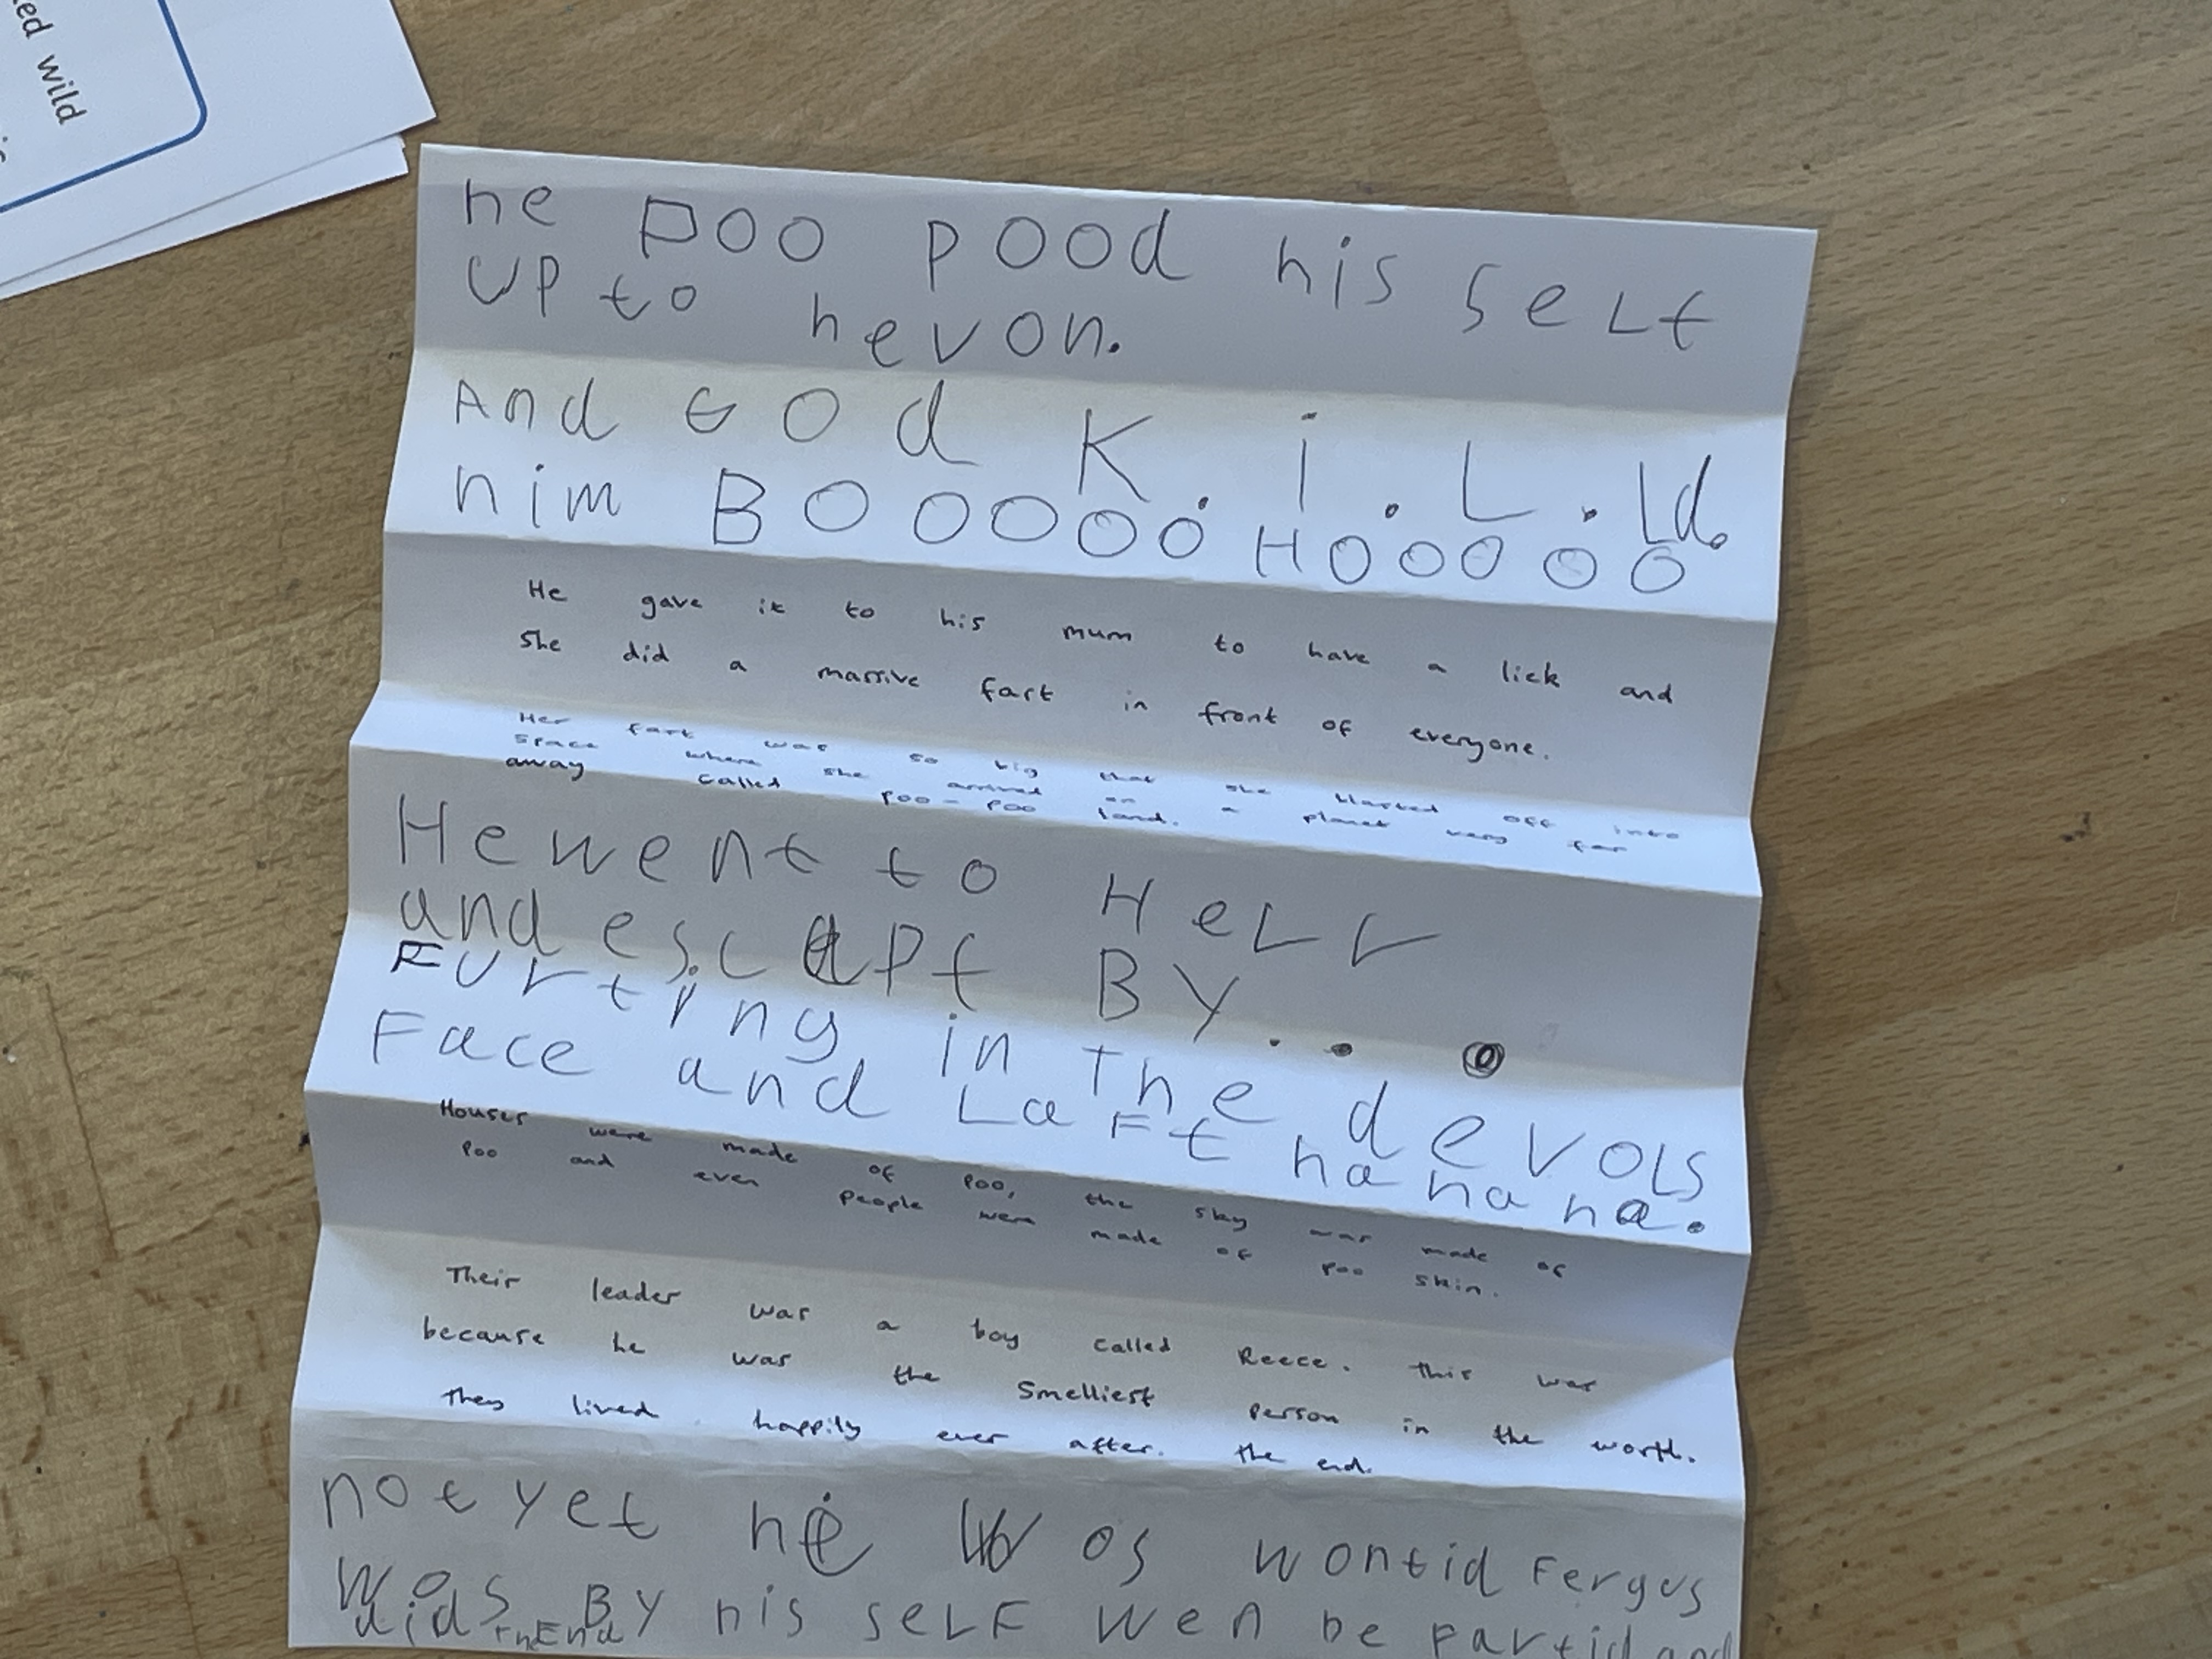 ed wild
he poo pood his self
up to hevon.
And God K.i.L.Ld.
him BOOOOO HOOOOO
He gave it to his mum to have a lick and
she did a massive fart in front of everyone.
Her fart was so big that she blasted off into
space where she arrived on a planet very far
away called poo-poo land.
He went to HeLL
and escapt BY...
Furting in The devoLs
Face and LaFt ha ha ha.
Houses were made of poo, the sky was made of
poo and even people were made of poo skin.
Their leader was a boy called Reece. This was
because he was the smelliest person in the world.
They lived happily ever after. The end.
not yet he Wos wontid Fergus
Wos BY his seLF wen he fartid and
did The End